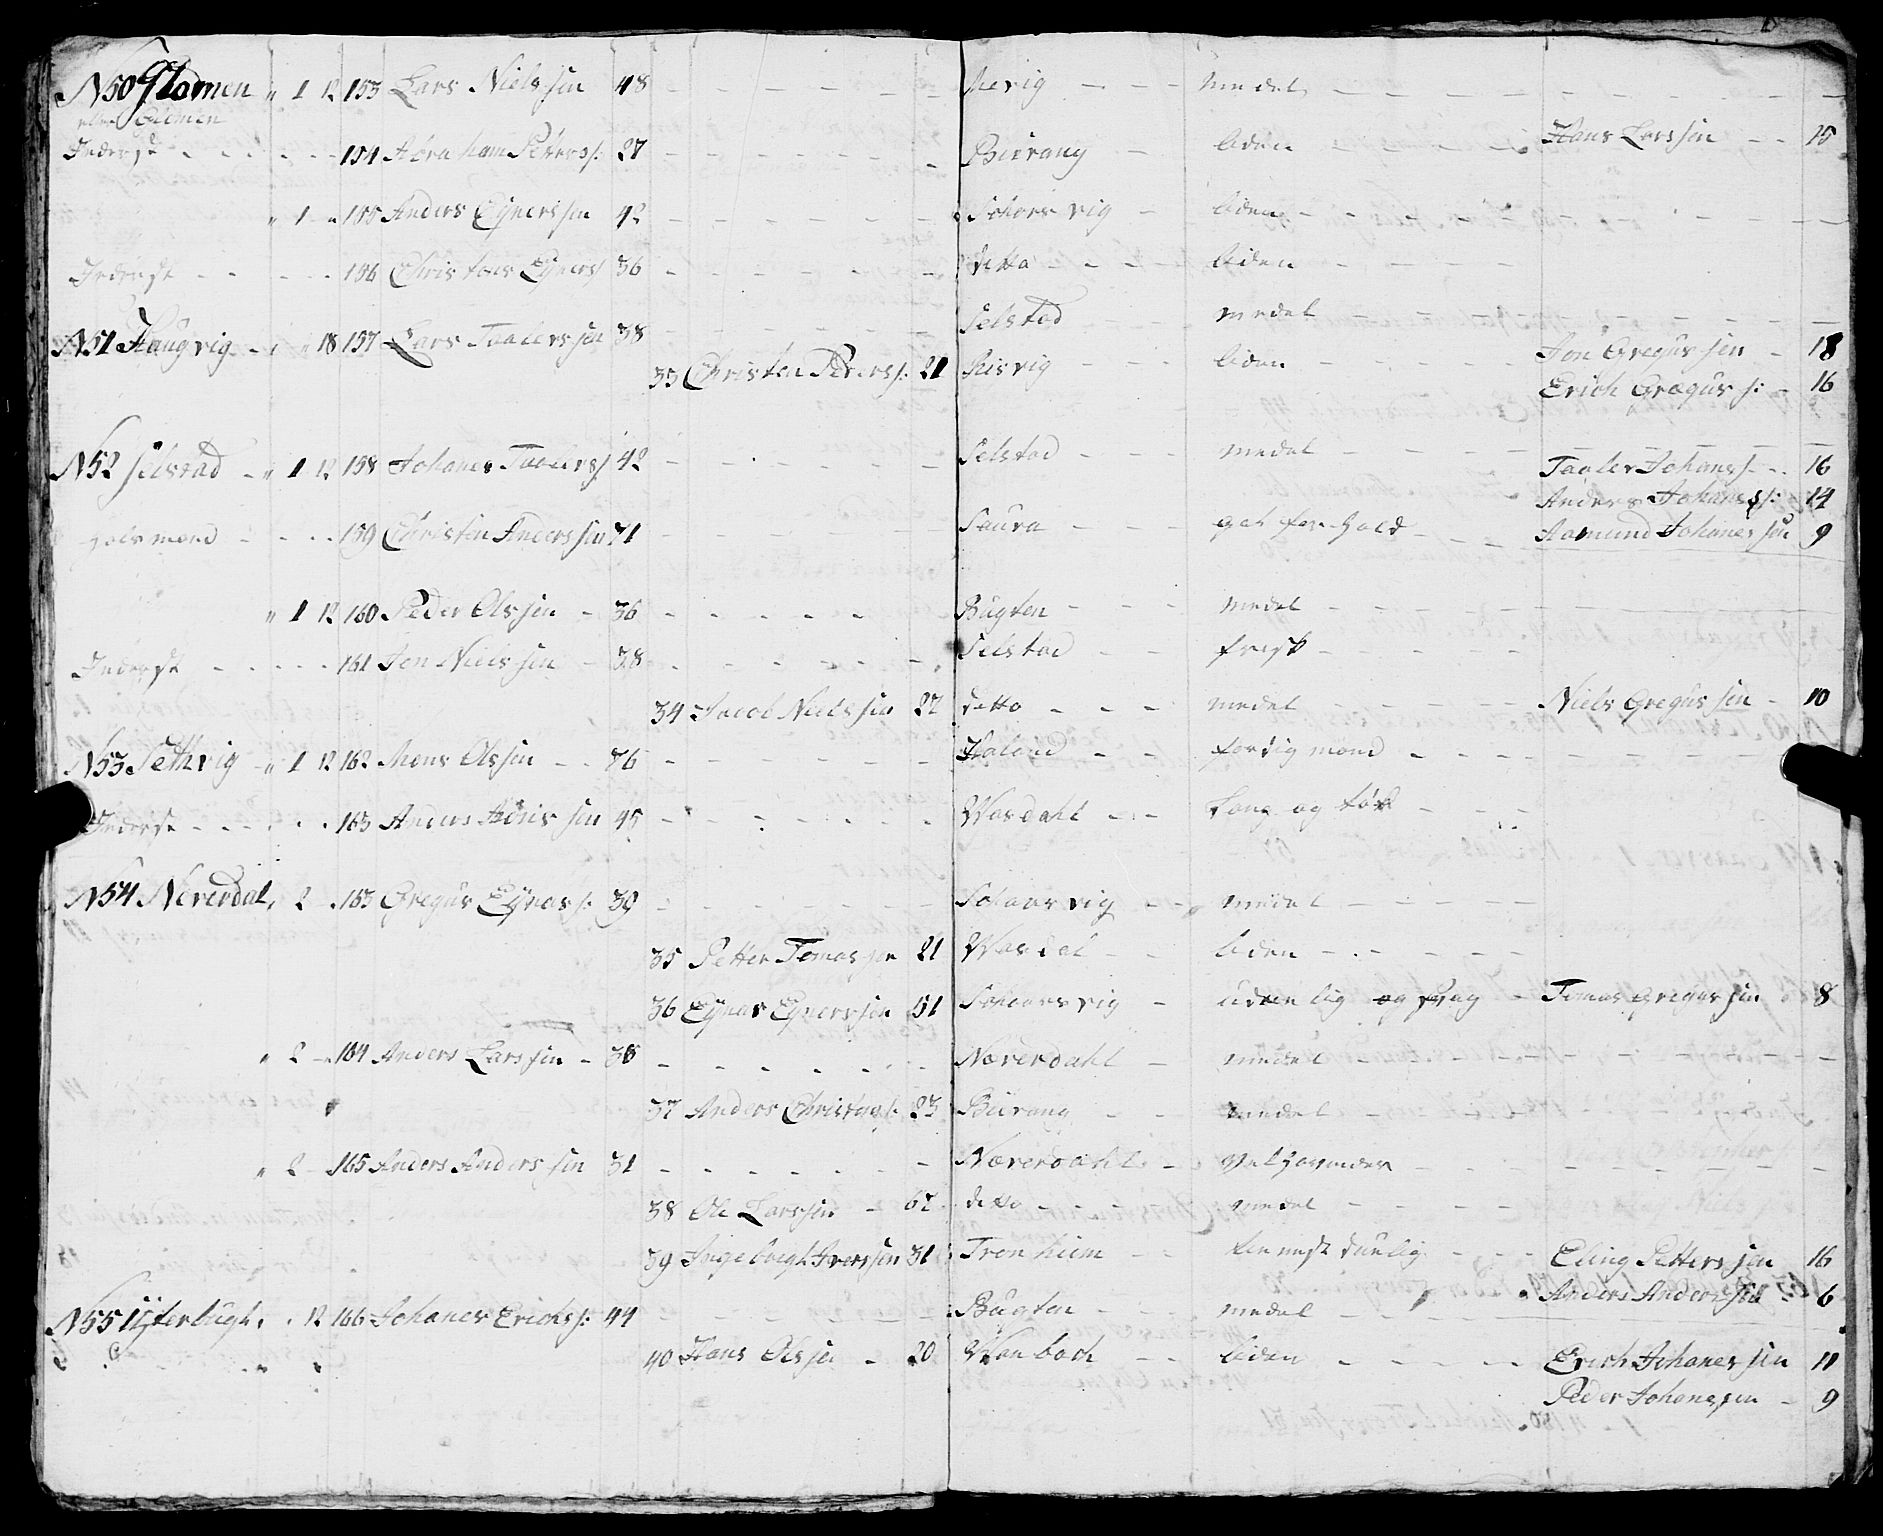 N 50 Glomen " 1 12 153 Lars Nielssen 48 - - - - - - medel - - - -
eller Glomen
Inderst - - - - 154 Abraham Peders: 27 - - - - - Biærang - liden - - - Hans Larssen - - 15
" 1 - 155 Anders Eÿnerssen 42 - - - - - Schars vig - liden - - - -
Inderst - - - - 156 Christens Eÿners 36 - - - - - detto - - - liden - - - -
N 51 Haugvig - " 18 157 Lars Taalerssen 38 - - - - - Selstad - - medel - - - -
33 Christen Peders: 21 Risvig - - - liden - - - - Jon Gregussen - 18
Erich Grægus s: - 16
N 52 selstad - " 1 12 158 Johanes Taalers 42 - - - - - Selstad - - - medel - - - -
Taaler Johans - - 16
Anders Johans s: 14
159 Christen Anderssen 71 - - - - - Saura - - - Aamund Johanessen 9
" 1 12 160 Peder Olssen - 36 - - - - - Bugten - - - medel - - - -
Inderst - - - - 161 Jon Nielssen - 38 - - - - - Selstad - - frisk - - - -
34 Jacob Nielssen 22 detto - - - medel - - - - Niels Gregussen - 10
N 53 Sethvig - " 1 12 162 Mons Olssen - - 76 - - - - - Haland - - - - - -
Inderst - - - - 163 Anders 45 - - - - - Wasdahl - - Lang og - - -
N 54 Nererdal, 2 - 163 Gregus Eÿners: 39 - - - - - Schaarsvig - - medel - - - -
35 Petter Tomassen 21 Wasdal - - liden - - - -
36 Eÿner Eÿnerssen 51 Schaarsvig - og svag - Tomas Gregussen 8
" 2 - 164 Anders Larssen - 38 - - - - - Nærerdahl - medel - - - -
37 Anders Christens: 23 Biærang - - medel - - - -
" 2 - 165 Anders Anderssen 31 - - - - - Nærerdahl - - - - -
38 Ole Larssen - 62 detto - - - medel - - - -
39 Ingebrigt Iverssen 31 Tronhiem - - - - - Eling Petterssen 16
Anders Anderssen - 6
N 55 Ytterbugt, . 12 166 Johanes Erichs: 44 - - - - - Bugten - - - medel - - - -
40 Hans Olssen - 20 - - liden - - - - Erich Johanessen 11
Peder Johanssen - 9